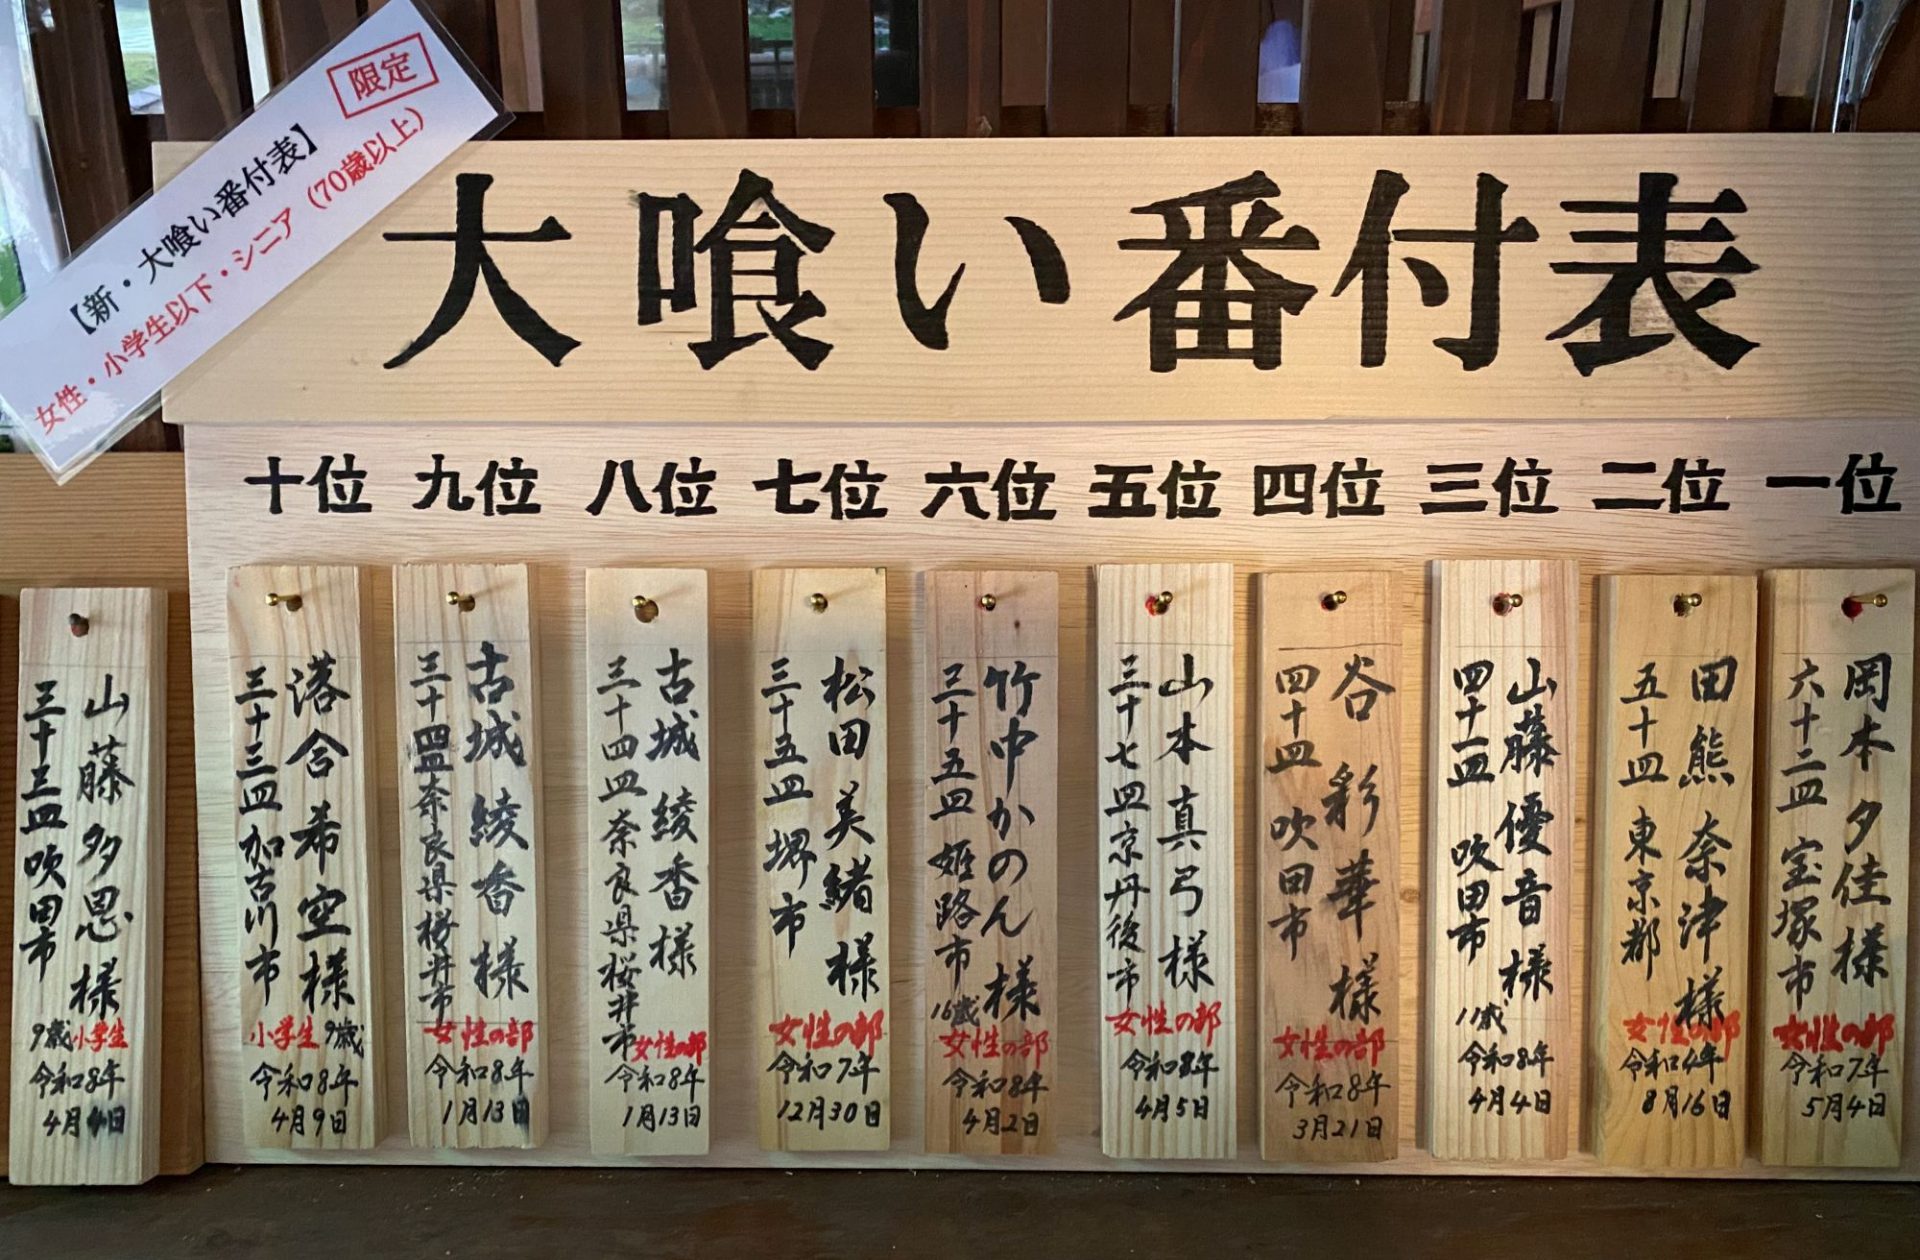 限定
【新・大喰い番付表】
女性・小学生以下・シニア(70歳以上)
大喰い番付表
一位
岡本夕佳様
六十二皿 宝塚市
女性の部
令和7年
5月4日
二位
田熊奈津様
五十皿 東京都
女性の部
令和4年
8月16日
三位
山藤優音様
四十一皿 吹田市
11歳
令和8年
4月4日
四位
谷彩華様
四十皿 吹田市
女性の部
令和8年
3月21日
五位
山本真弓様
三十七皿 京丹後市
女性の部
令和8年
4月5日
六位
竹中かのん様
三十五皿 姫路市
16歳
女性の部
令和8年
4月2日
七位
松田美緒様
三十五皿 堺市
女性の部
令和7年
12月30日
八位
古城綾香様
三十四皿 奈良県桜井市
女性の部
令和8年
1月13日
九位
古城綾香様
三十四皿 奈良県桜井市
女性の部
令和8年
1月13日
十位
落合希空様
三十三皿 加古川市
小学生 9歳
令和8年
4月9日
山藤多恩様
三十三皿 吹田市
9歳 小学生
令和8年
4月4日